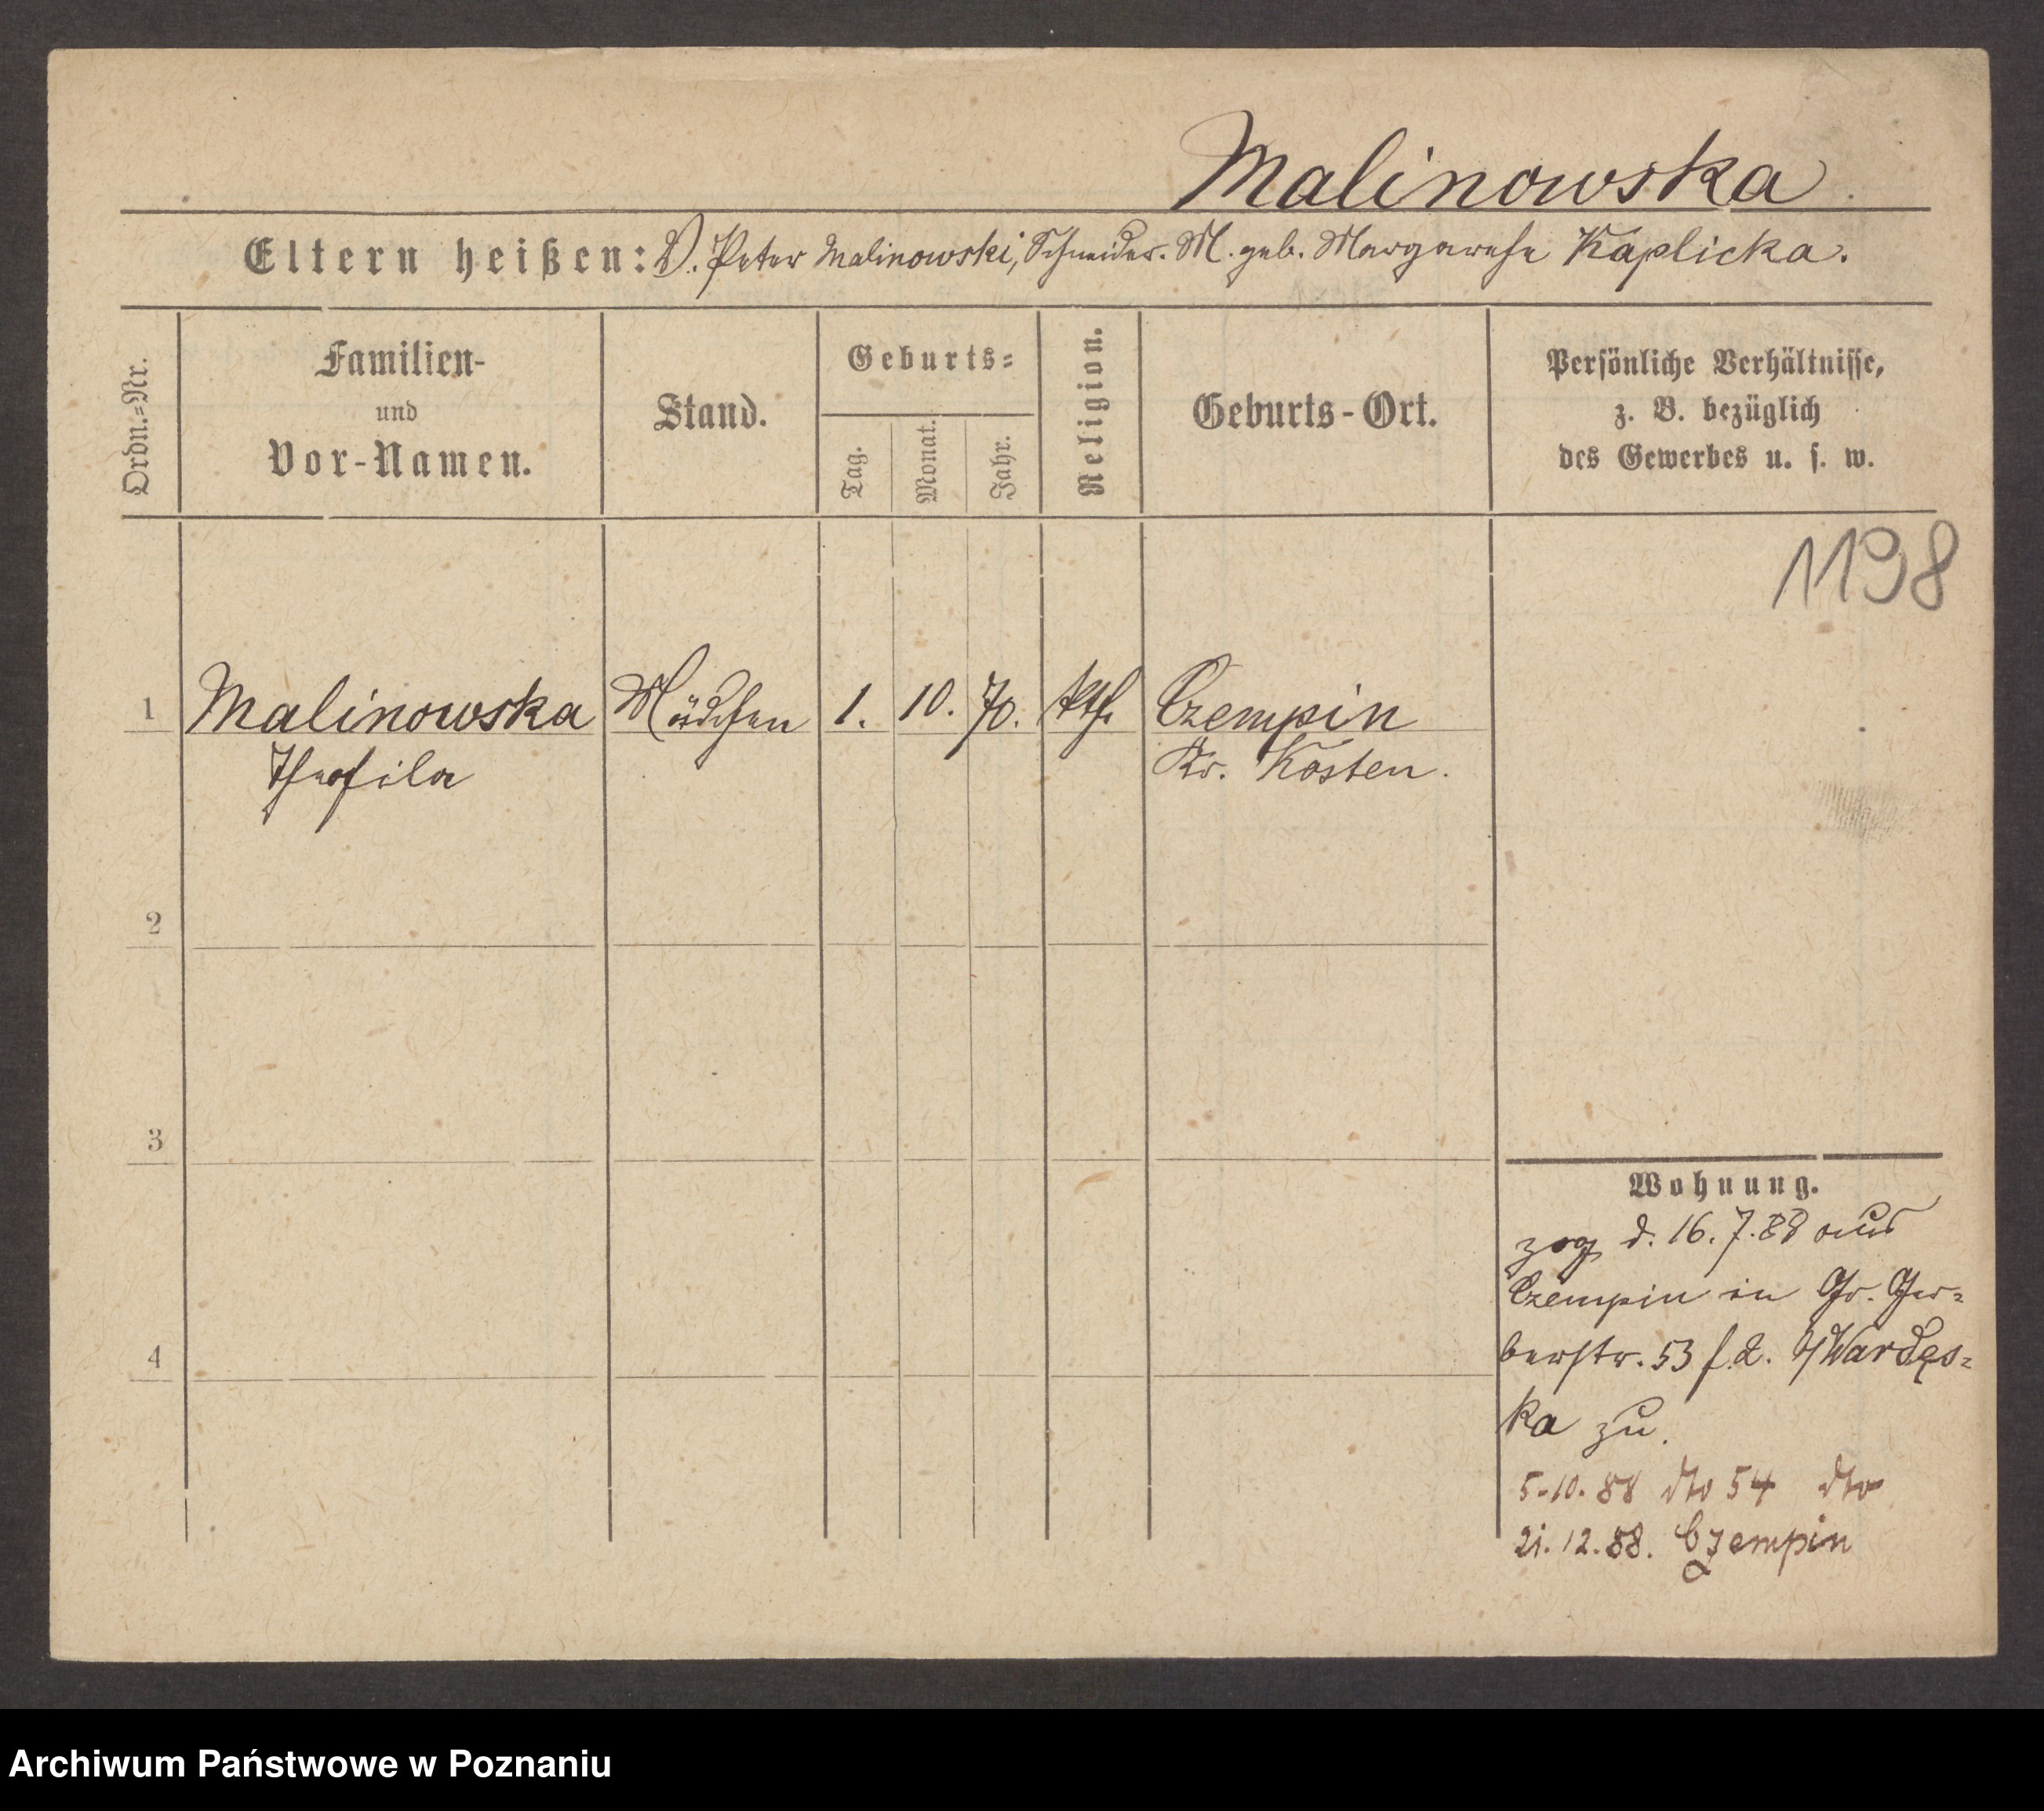 Malinowska.
Eltern heißen: V. Peter Malinowski, Schneider. M. geb. Margarethe Kaplicka.
Ordn.=Nr.
Familien-
und
Vor-Namen.
Stand.
Geburts=
Tag.
Monat.
Jahr.
Religion.
Geburts-Ort.
Persönliche Verhältnisse,
z. B. bezüglich
des Gewerbes u. s. w.
1198
1 Malinowska Mädchen 1. 10. 70. kth. Czempin
Theofila Kr. Kosten.
2
3
4
Wohnung.
zog d. 16.7.88 aus
Czempin in Gr. Ger=
berstr. 53 b/Wardęs=
ka zu.
5.10.88 dto 54 dto
21.12.88. Czempin
Archiwum Państwowe w Poznaniu